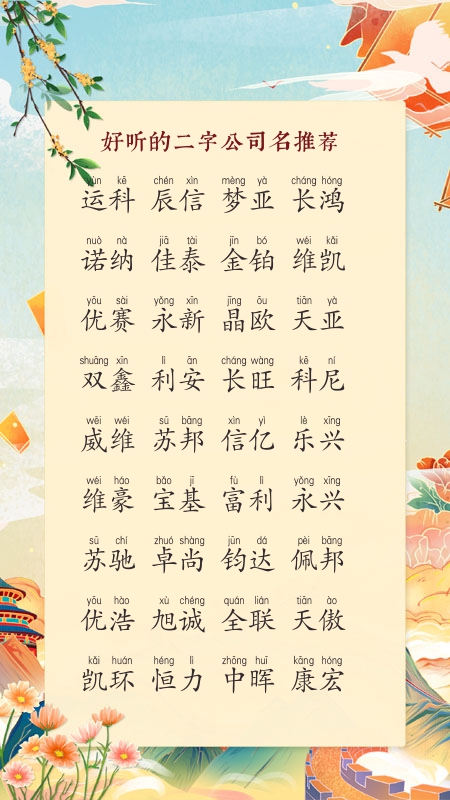 好听的二字公司名推荐
yùn kē chén xìn mèng yà cháng hóng
运科 辰信 梦亚 长鸿
nuò nà jiā tài jīn bó wéi kǎi
诺纳 佳泰 金铂 维凯
yōu sài yǒng xīn jīng ōu tiān yà
优赛 永新 晶欧 天亚
shuāng xīn lì ān cháng wàng kē ní
双鑫 利安 长旺 科尼
wēi wéi sū bāng xìn yì lè xīng
威维 苏邦 信亿 乐兴
wéi háo bǎo jī fù lì yǒng xīng
维豪 宝基 富利 永兴
sū chí zhuó shàng jūn dá pèi bāng
苏驰 卓尚 钧达 佩邦
yōu hào xù chéng quán lián tiān ào
优浩 旭诚 全联 天傲
kǎi huán héng lì zhōng huī kāng hóng
凯环 恒力 中晖 康宏